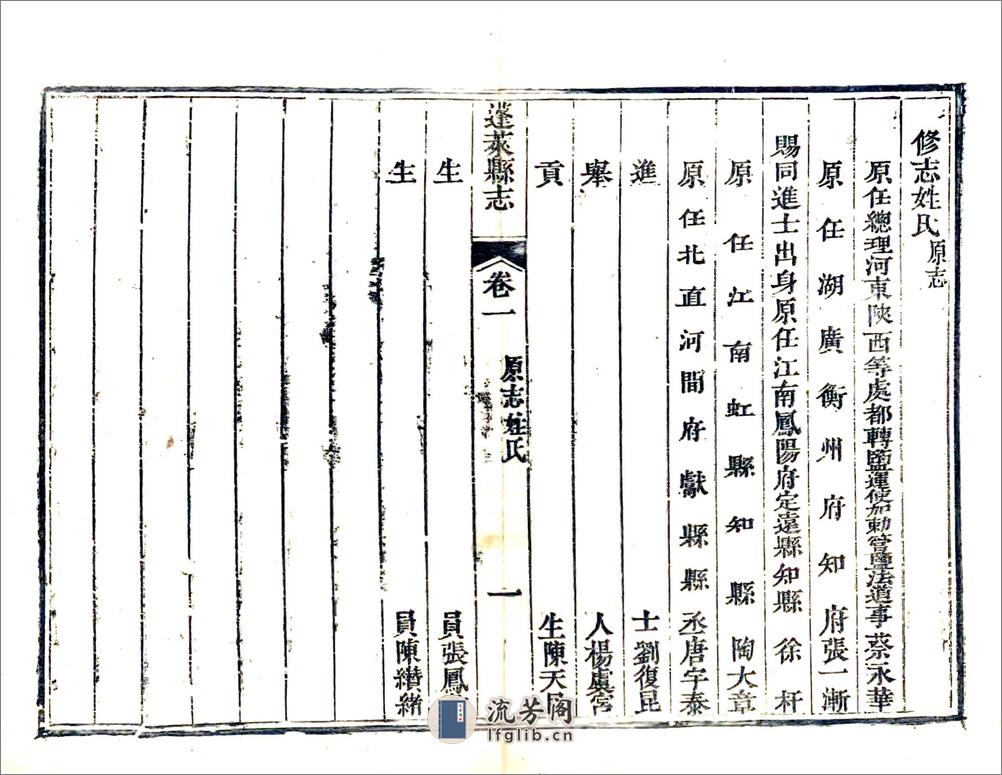 修志姓氏原志
原任總理河東陝西等處都轉鹽運使加勅管鹽法道事蔡永華
原任湖廣衡州府知府張一漸
賜同進士出身原任江南鳳陽府定遠縣知縣徐杆
原任江南虹縣知縣陶大章
原任北直河間府獻縣縣丞唐宇泰
進士劉復昆
舉人楊虞宮
貢生陳天
蓬萊縣志
卷一
原志姓氏
一
生員張鳳
生員陳纘緒
流芳阁
lfglib.cn